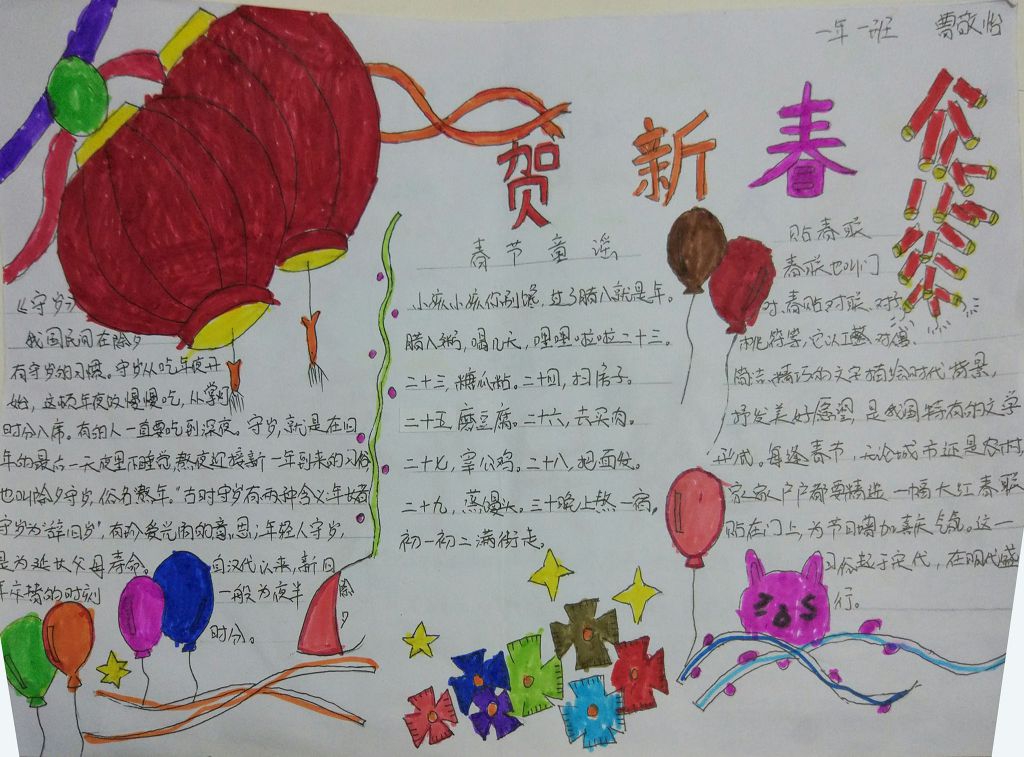 一年一班 曹敬怡
贺新春
《守岁》
我国民间在除夕
有守岁的习惯。守岁从吃年夜开
始，这顿年夜饭慢慢吃，从掌灯
时分入席。有的人一直要吃到深夜。守岁，就是在旧
年的最后一天夜里不睡觉熬夜迎接新一年到来的习俗
也叫除夕守岁，俗名熬年。"古时守岁有两种含义年长者
守岁为"辞旧岁"，有珍爱光阴的意思；年轻人守岁，
是为延长父母寿命。自汉代以来，新旧
年交替的时刻一般为夜半
时分。
除夕
春节童谣
小孩小孩你别馋，过了腊八就是年。
腊八粥，喝几天，哩哩啦啦二十三。
二十三，糖瓜粘。二十四，扫房子。
二十五磨豆腐。二十六，去买肉。
二十七，宰公鸡。二十八，把面发。
二十九，蒸馒头。三十晚上熬一宿，
初一初二满街走。
贴春联
春联也叫门
对、春贴对联、对子
桃符等，它以工整、对偶
简洁、精巧的文字描绘时代背景，
抒发美好愿望，是我国特有的文字
形式。每逢春节，无论城市还是农村，
家家户户都要精选一幅大红春联
贴在门上，为节日增加喜庆气氛。这一
习俗起于宋代，在明代盛
行。